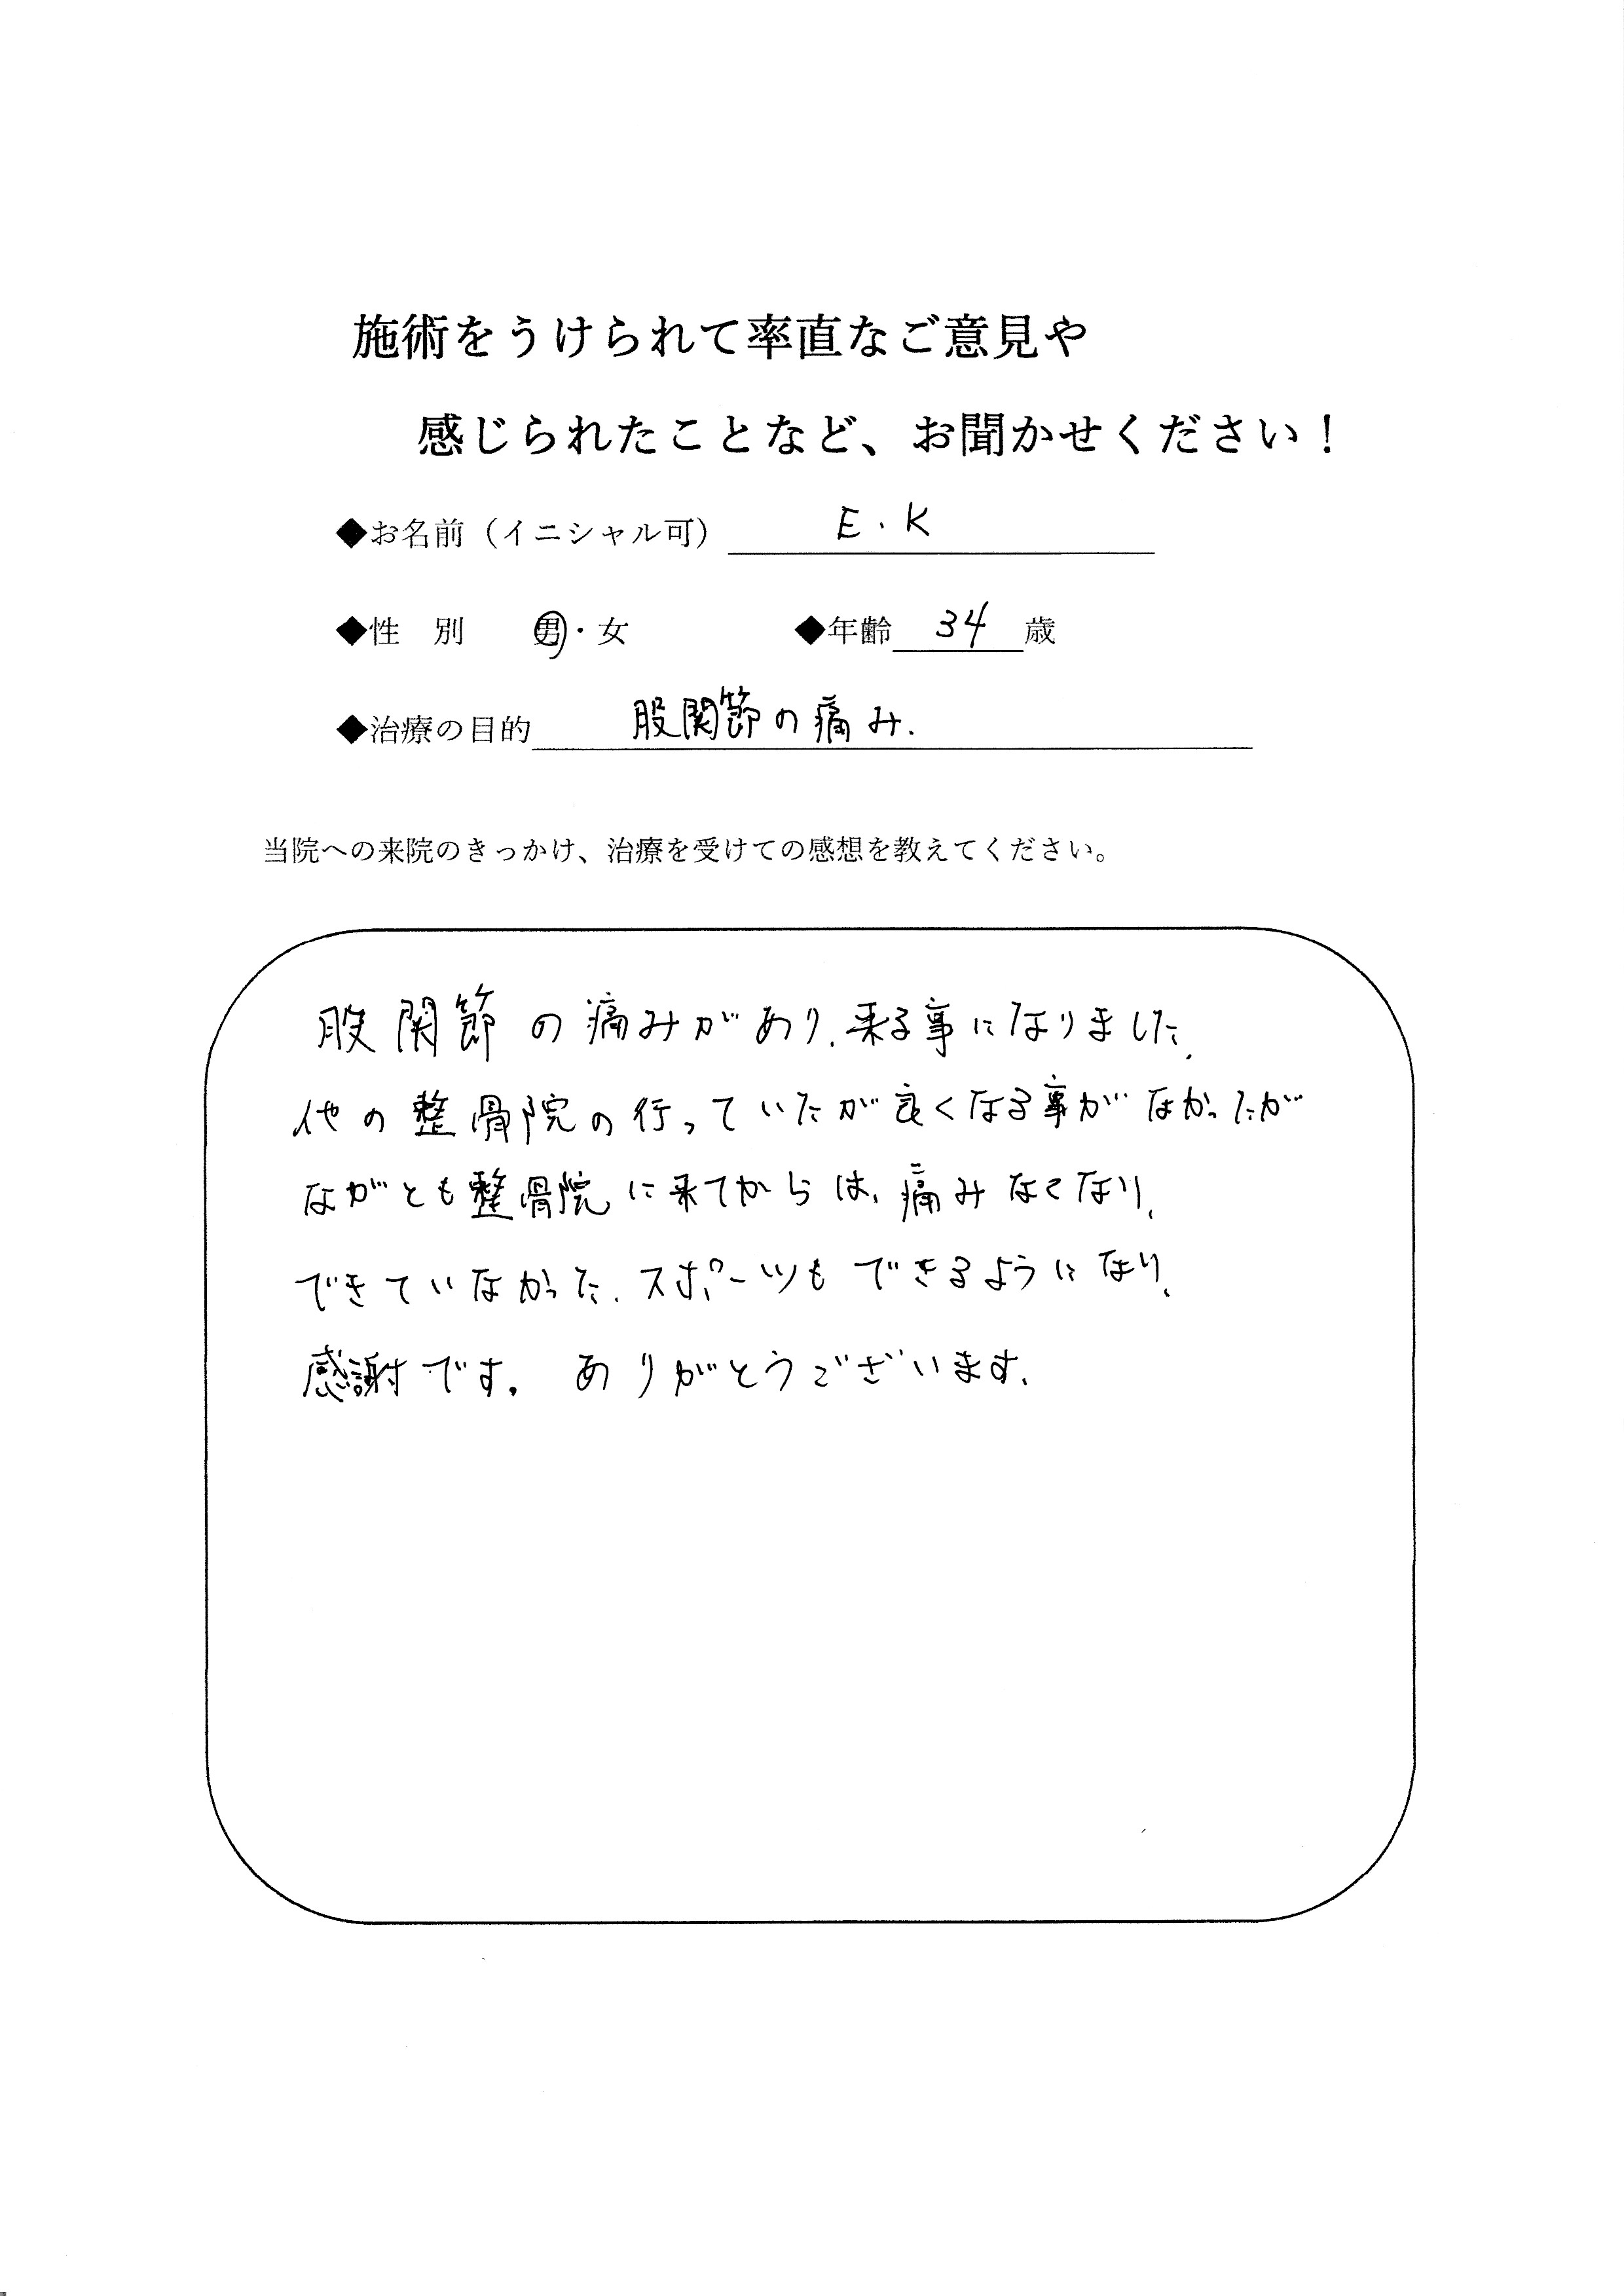 施術をうけられて率直なご意見や
感じられたことなど、お聞かせください！
◆お名前（イニシャル可） E.K
◆性　別　男・女　◆年齢 34 歳
◆治療の目的 股関節の痛み.
当院への来院のきっかけ、治療を受けての感想を教えてください。
股関節の痛みがあり、来る事になりました、
他の整骨院の行っていたが良くなる事がなかったが
ながとも整骨院に来てからは、痛みなくなり、
できていなかった、スポーツもできるようになり、
感謝です。ありがとうございます、